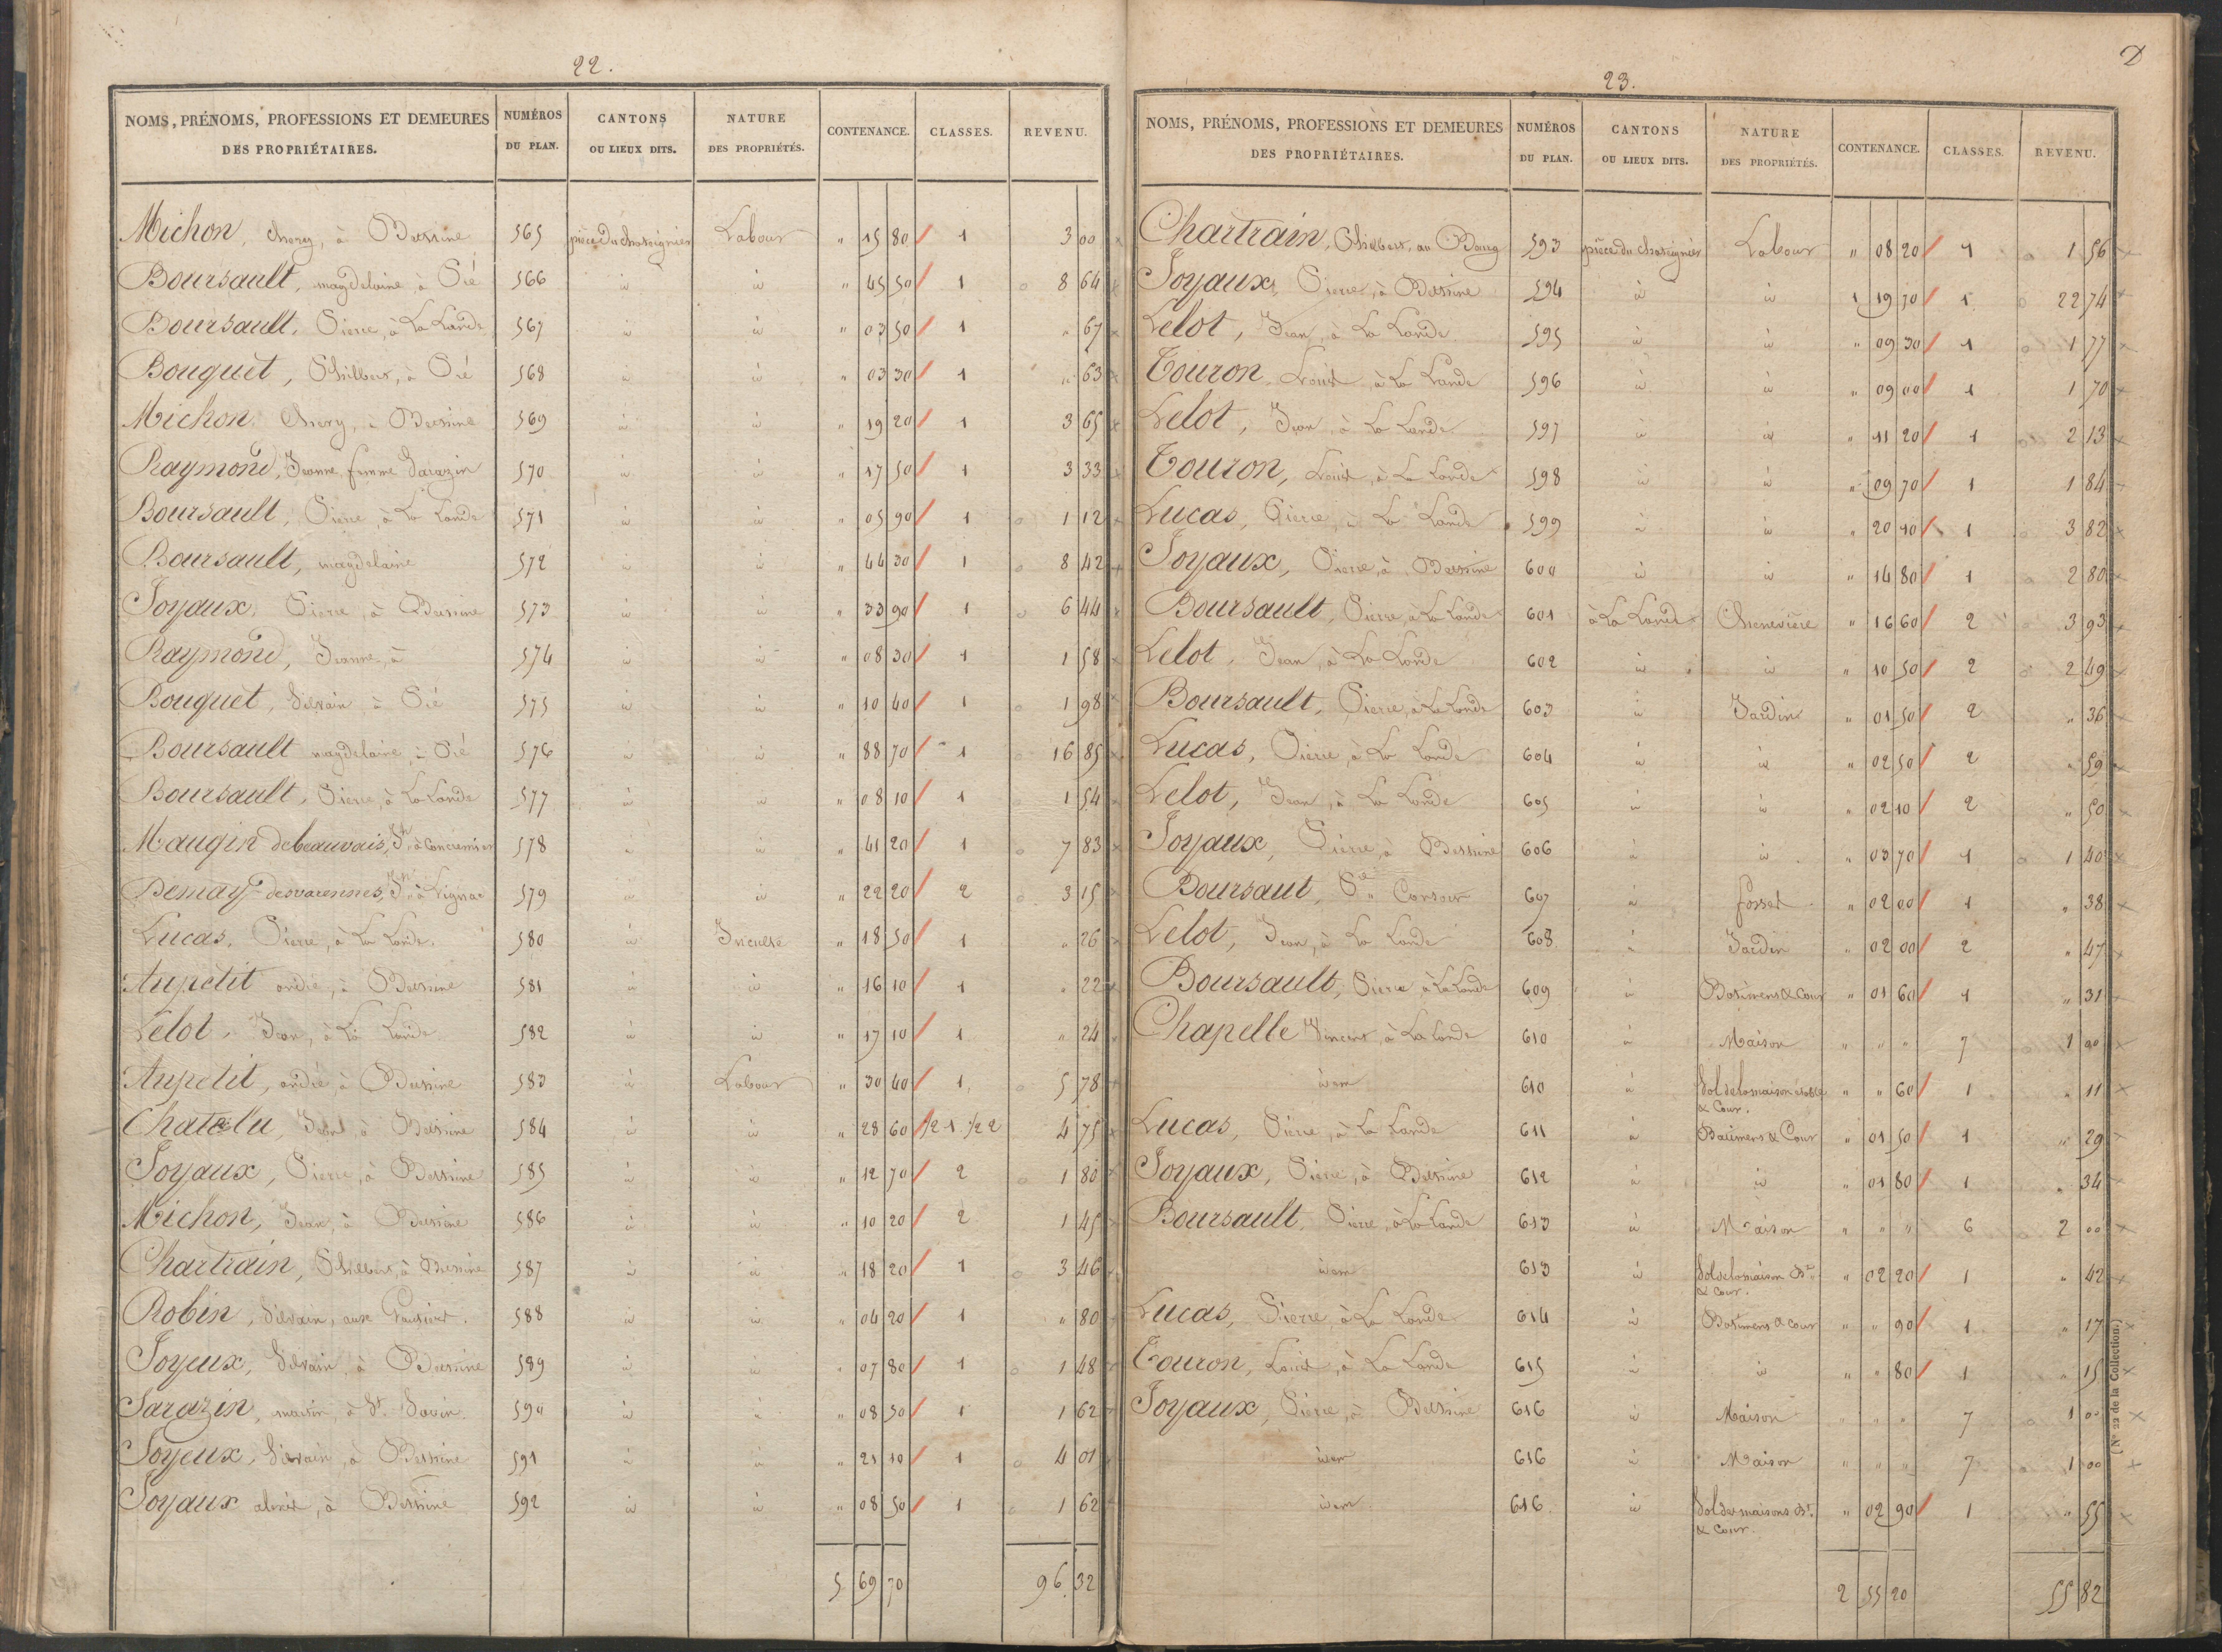 22.
NOMS, PRÉNOMS, PROFESSIONS ET DEMEURES DES PROPRIÉTAIRES. | NUMÉROS DU PLAN. | CANTONS OU LIEUX DITS. | NATURE DES PROPRIÉTÉS. | CONTENANCE. | CLASSES. | REVENU.
Michon, Chery, à Bessine 565 pièce du chateignier Labour " 15 80 1 3 00
Boursault, magdelaine à Pié 566 id id " 45 50 1 8 64
Boursault, Pierre, à La Lande 567 id id " 03 50 1 " 67
Bouquet, Philbert, à Pié 568 id id " 03 30 1 " 63
Michon, Chery, à Bessine 569 id id " 19 20 1 3 65
Raymond, Jeanne femme Sarazin 570 id id " 17 50 1 3 33
Boursault, Pierre, à La Lande 571 id id " 05 90 1 1 12
Boursault, magdelaine 572 id id " 44 30 1 8 42
Joyaux, Pierre, à Bessine 573 id id " 33 90 1 6 44
Raymond, Jeanne, à 574 id id " 08 30 1 1 58
Bouquet, Silvain à Pié 575 id id " 10 40 1 1 98
Boursault magdelaine, à Pié 576 id id " 88 70 1 16 85
Boursault, Pierre, à La Lande 577 id id " 08 10 1 1 54
Maugin debeauvais, Jn. à Concremier 578 id id " 41 20 1 7 83
Demay desvarennes, Jn. à Lignac 579 id id " 22 20 2 3 15
Lucas, Pierre, à La Lande. 580 id Inculte " 18 50 1 " 26
Aupetit andré, à Bessine 581 id id " 16 10 1 " 22
Lelot, Jean, à La Lande 582 id id " 17 10 1 " 24
Aupetit, andré, à Bessine 583 id Labour " 30 40 1 5 78
Chatelu, à Bessine 584 id id " 28 60 1/2 1. 1/2 2 4 75
Joyaux, Pierre, à Bessine 585 id id " 12 70 2 1 80
Michon, Jean, à Bessine 586 id id " 10 20 2 1 45
Chartrain, Philbert, à Bessine 587 id id " 18 20 1 3 46
Robin, Silvain, aux 588 id id " 04 20 1 " 80
Joyeux, Silvain, à Bessine 589 id id " 07 80 1 1 48
Sarazin, martin, à St. Savin 590 id id " 08 50 1 1 62
Joyeux, Silvain, à Bessine 591 id id " 21 10 1 4 01
Joyaux alexis, à Bessine 592 id id " 08 50 1 1 62
5 69 70 96 32
23.
NOMS, PRÉNOMS, PROFESSIONS ET DEMEURES DES PROPRIÉTAIRES. | NUMÉROS DU PLAN. | CANTONS OU LIEUX DITS. | NATURE DES PROPRIÉTÉS. | CONTENANCE. | CLASSES. | REVENU.
Chartrain, Philbert, au Bourg 593 pièce du chateignier Labour " 08 20 1 1 56
Joyaux, Pierre, à Bessine 594 id id 1 19 70 1 22 74
Lelot, Jean, à La Lande 595 id id " 09 30 1 1 77
Touron, Louis, à La Lande 596 id id " 09 00 1 1 70
Lelot, Jean, à La Lande 597 id id " 11 20 1 2 13
Touron, Louis, à La Lande 598 id id " 09 70 1 1 84
Lucas, Pierre, à La Lande 599 id id " 20 10 1 3 82
Joyaux, Pierre, à Bessine 600 id id " 14 80 1 2 80
Boursault, Pierre, à La Lande 601 à La Lande Chenevière " 16 60 2 3 93
Lelot, Jean, à La Lande 602 id id " 10 50 2 2 49
Boursault, Pierre, à La Lande 603 id Jardin " 01 50 2 " 36
Lucas, Pierre, à La Lande 604 id id " 02 50 2 " 59
Lelot, Jean, à La Lande 605 id id " 02 10 2 " 50
Joyaux, Pierre, à Bessine 606 id id " 03 70 1 1 40
Boursaut, Pe. 607 id fossé " 02 00 1 " 38
Lelot, Jean, à La Lande 608 id Jardin " 02 00 2 " 47
Boursault, Pierre à La Lande 609 id Batimens & Cour " 01 60 1 " 31
Chapelle Vincent, à La Lande 610 id Maison " " " 7 1 00
idem 610 id Sol de la maison etable & Cour. " " 60 1 " 11
Lucas, Pierre, à La Lande 611 id Batimens & Cour " 01 50 1 " 29
Joyaux, Pierre, à Bessine 612 id id " 01 80 1 " 34
Boursault, Pierre, à La Lande 613 id Maison " " " 6 2 00
idem 613 id Sol de la maison Bt. & Cour. " 02 20 1 " 42
Lucas, Pierre, à La Lande 614 id Batimens & Cour " " 90 1 " 17
Touron, Louis, à La Lande 615 id id " " 80 1 " 15
Joyaux, Pierre, à Bessine 616 id Maison " " " 7 1 00
idem 616 id Maison " " " 7 1 00
idem 616 id Sol des maisons Bt. & Cour. " 02 90 1 " 55
2 55 20 55 82
(N° 22 de la Collection.)